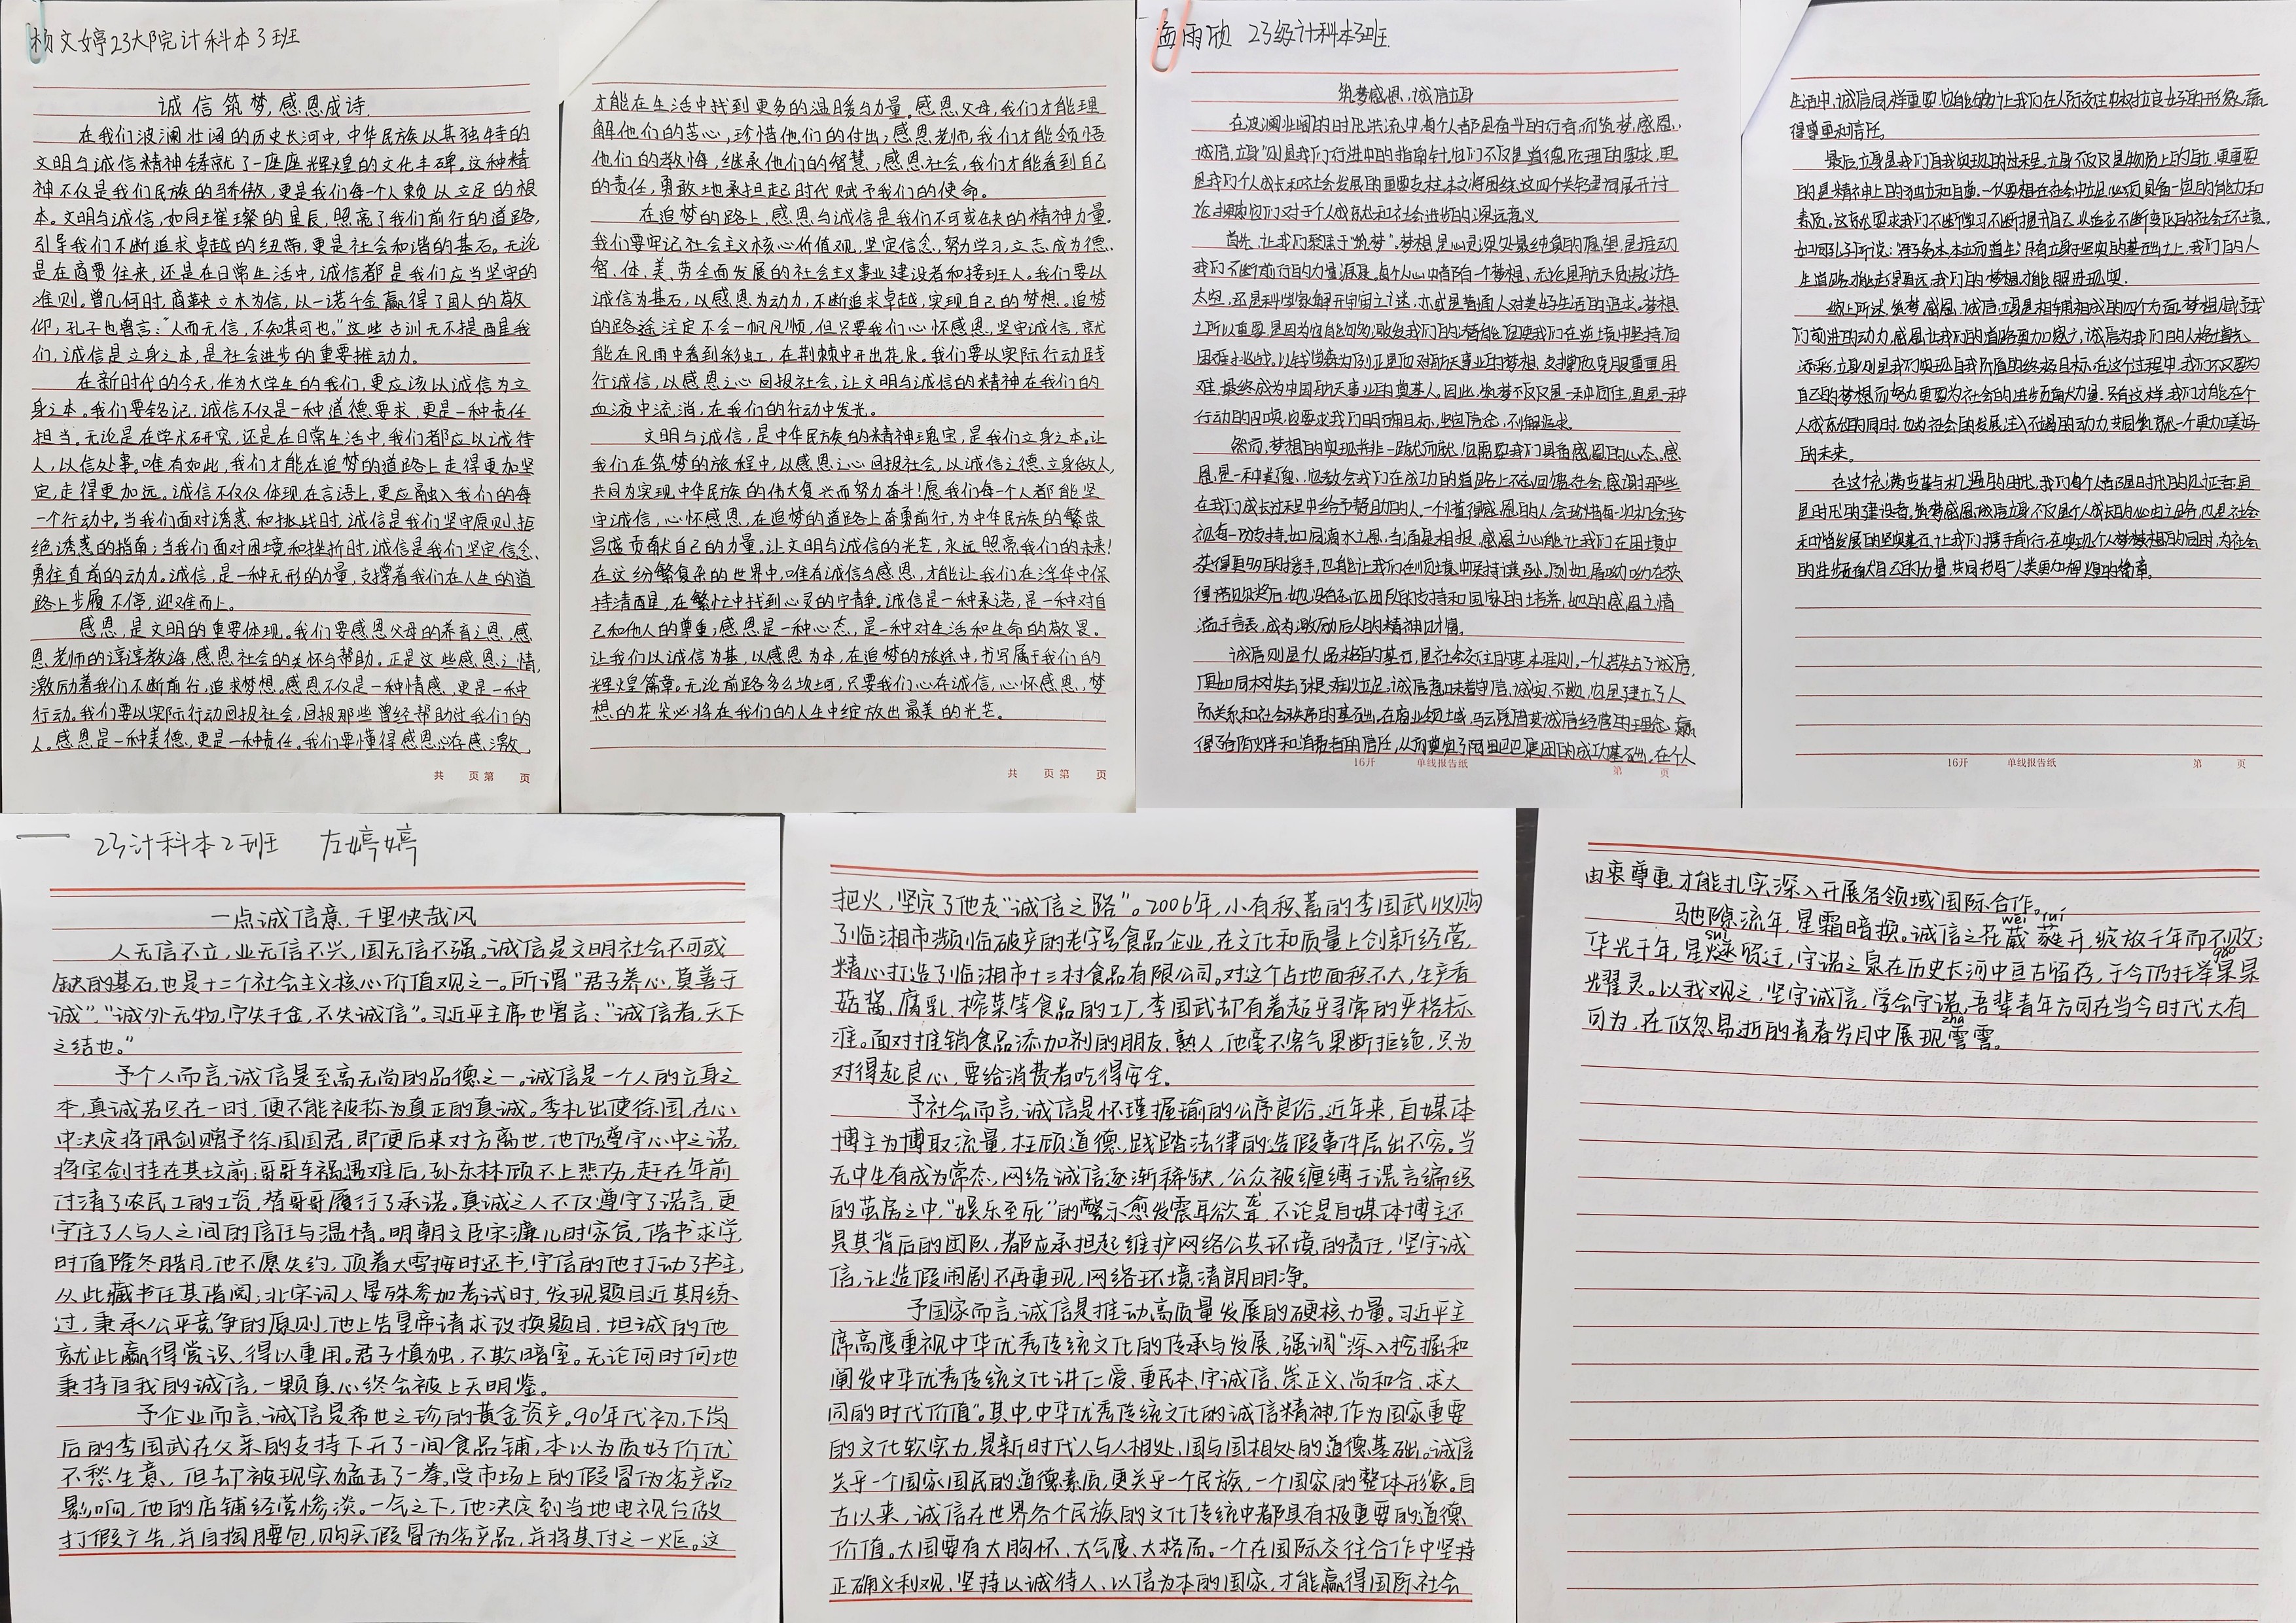 杨文婷23大院计科本3班
诚信筑梦,感恩成诗.
在我们波澜壮阔的历史长河中,中华民族以其独特的
文明与诚信精神铸就了一座座辉煌的文化丰碑。这种精
神不仅是我们民族的骄傲,更是我们每一个人赖以立足的根
本。文明与诚信,如同璀璨的星辰,照亮了我们前行的道路,
引导我们不断追求卓越的纽带,更是社会和谐的基石。无论
是在商贾往来,还是在日常生活中,诚信都是我们应当坚守的
准则。曾几何时,商鞅立木为信,以一诺千金赢得了国人的敬
仰;孔子也曾言:“人而无信,不知其可也。”这些古训无不提醒我
们,诚信是立身之本,是社会进步的重要推动力。
在新时代的今天,作为大学生的我们,更应该以诚信为立
身之本。我们要铭记,诚信不仅是一种道德要求,更是一种责任
担当。无论是在学术研究,还是在日常生活中,我们都应以诚待
人,以信处事。唯有如此,我们才能在追梦的道路上走得更加坚
定,走得更加远。诚信不仅仅体现在言语上,更应融入我们的每
一个行动中。当我们面对诱惑和挑战时,诚信是我们坚守原则、拒
绝诱惑的指南;当我们面对困境和挫折时,诚信是我们坚定信念、
勇往直前的动力。诚信,是一种无形的力量,支撑着我们在人生的道
路上步履不停,迎难而上。
感恩,是文明的重要体现。我们要感恩父母的养育之恩,感
恩老师的谆谆教诲,感恩社会的关怀与帮助。正是这些感恩之情,
激励着我们不断前行,追求梦想。感恩不仅是一种情感,更是一种
行动。我们要以实际行动回报社会,回报那些曾经帮助过我们的
人。感恩是一种美德,更是一种责任。我们要懂得感恩,心存感激,
共 页 第 页
才能在生活中找到更多的温暖与力量。感恩父母,我们才能理
解他们的苦心,珍惜他们的付出;感恩老师,我们才能领悟
他们的教悔,继承他们的智慧;感恩社会,我们才能看到自己
的责任,勇敢地承担起时代赋予我们的使命。
在追梦的路上,感恩与诚信是我们不可或缺的精神力量。
我们要牢记社会主义核心价值观,坚定信念,努力学习,立志成为德、
智、体、美、劳全面发展的社会主义事业建设者和接班人。我们要以
诚信为基石,以感恩为动力,不断追求卓越,实现自己的梦想。追梦
的路途注定不会一帆风顺,但只要我们心怀感恩,坚守诚信,就
能在风雨中看到彩虹,在荆棘中开出花朵。我们要以实际行动践
行诚信,以感恩之心回报社会,让文明与诚信的精神在我们的
血液中流淌,在我们的行动中发光。
文明与诚信,是中华民族的精神瑰宝,是我们立身之本。让
我们在筑梦的旅程中,以感恩之心回报社会,以诚信之德立身做人,
共同为实现中华民族的伟大复兴而努力奋斗!愿我们每一个人都能坚
守诚信,心怀感恩,在追梦的道路上奋勇前行,为中华民族的繁荣
昌盛贡献自己的力量。让文明与诚信的光芒,永远照亮我们的未来!
在这纷繁复杂的世界中,唯有诚信与感恩,才能让我们在浮华中保
持清醒,在繁忙中找到心灵的宁静。诚信是一种承诺,是一种对自
己和他人的尊重;感恩是一种心态,是一种对生活和生命的敬畏。
让我们以诚信为基,以感恩为本,在追梦的旅途中,书写属于我们的
辉煌篇章。无论前路多么坎坷,只要我们心存诚信,心怀感恩,梦
想的花朵必将在我们的人生中绽放出最美的光芒。
共 页 第 页
孟雨欣 23级计科本3班
筑梦感恩,诚信立身
在波澜壮阔的时代洪流中,每个人都是奋斗的行者,而筑梦、感恩、
诚信、立身”则是我们行进中的指南针,它们不仅是道德伦理的要求,更
是我们个人成长和社会发展的重要支柱。本文将围绕这四个关键词展开讨
论,探索它们对于个人成就和社会进步的深远意义。
首先,让我们聚焦于“筑梦”。梦想是心灵深处最纯真的愿望,是推动
我们不断前行的力量源泉。每个人心中都有一个梦想,无论是航天员遨游
太空,还是科学家解开宇宙之谜,亦或是普通人对美好生活的追求。梦想
之所以重要,是因为它能够激发我们的潜能,促使我们在逆境中坚持,向
困难挑战。以钱学森为例,正是他对航天事业的梦想,支撑他克服重重困
难,最终成为中国航天事业的奠基人。因此,筑梦不仅仅是一种向往,更是一种
行动的召唤,它要求我们明确目标,坚定信念,不懈追求。
然而,梦想的实现并非一蹴而就,它需要我们具备感恩的心态。感
恩,是一种美德,它教会我们在成功的道路上不忘回馈社会,感谢那些
在我们成长过程中给予帮助的人。一个懂得感恩的人,会珍惜每一次机会,珍
视每一份支持。如同滴水之恩,当涌泉相报,感恩之心能让我们在困境中
获得更多的援手,也能让我们在顺境中保持谦逊。例如,屠呦呦在获
得诺贝尔奖后,她没有忘记团队的支持和国家的培养,她的感恩之情
溢于言表,成为激励后人的精神财富。
诚信则是个人品格的基石,是社会交往的基本准则。一个人若失去了诚信,
便如同树失去了根,难以立足。诚信意味着守信、诚实、不欺,它是建立了人
际关系和社会秩序的基础。在商业领域,马云凭借其诚信经营的理念,赢
得了合作伙伴和消费者的信任,从而奠定了阿里巴巴集团的成功基础。在个人
16开 单线报告纸
第 页
生活中,诚信同样重要,它能够让我们在人际交往中树立良好的形象,赢
得尊重和信任。
最后,立身是我们自我实现的过程。立身不仅仅是物质上的自立,更重要
的是精神上的独立和自尊。一个人要想在社会中立足,必须具备一定的能力和
素质。这就要求我们不断学习,不断提升自己,以适应不断变化的社会环境。
如同孔子所说:“君子务本,本立而道生”。只有立身于坚实的基础之上,我们的人
生道路才能走得更远,我们的梦想才能照进现实。
综上所述,筑梦、感恩、诚信、立身是相辅相成的四个方面。梦想赋予我
们前进的动力,感恩让我们的道路更加宽广,诚信为我们的人格增光
添彩,立身则是我们实现自我价值的终极目标。在这个过程中,我们不仅要为
自己的梦想而努力,更要为社会的进步贡献力量。只有这样,我们才能在个
人成就的同时,也为社会的发展注入不竭的动力,共同筑就一个更加美好
的未来。
在这个充满变革与机遇的时代,我们每个人都是时代的见证者,更
是时代的建设者。筑梦感恩,诚信立身,不仅是个人成长的必由之路,也是社会
和谐发展的坚实基石。让我们携手前行,在实现个人梦梦想的同时,为社会
的进步贡献自己的力量,共同书写人类更加辉煌的篇章。
16开 单线报告纸
第 页
23计科本2班 左婷婷
一点诚信意,千里快哉风
人无信不立,业无信不兴,国无信不强。诚信是文明社会不可或
缺的基石,也是十二个社会主义核心价值观之一。所谓“君子养心,莫善于
诚”,“诚外无物,宁失千金,不失诚信”。习近平主席也曾言:“诚信者,天下
之结也。”
予个人而言,诚信是至高无尚的品德之一。诚信是一个人的立身之
本,真诚若只在一时,便不能被称为真正的真诚。季札出使徐国,在心
中决定将佩剑赠予徐国国君,即便后来对方离世,他仍遵守心中之诺,
将宝剑挂在其坟前;哥哥车祸遇难后,孙东林顾不上悲伤,赶在年前
付清了农民工的工资,替哥哥履行了承诺。真诚之人不仅遵守了诺言,更
守住了人与人之间的信任与温情。明朝文臣宋濂儿时家贫,借书求学,
时值隆冬腊月,他不愿失约,顶着大雪按时还书,守信的他打动了书主,
从此藏书任其借阅;北宋词人晏殊参加考试时,发现题目近期练
过,秉承公平竞争的原则,他上告皇帝请求改换题目,坦诚的他
就此赢得赏识、得以重用。君子慎独,不欺暗室。无论何时何地
秉持自我的诚信,一颗真心终会被上天明鉴。
予企业而言,诚信是希世之珍的黄金资产。90年代初,下岗
后的李国武在父亲的支持下开了一间食品铺,本以为质好价优
不愁生意,但却被现实猛击了一拳。受市场上的假冒伪劣产品
影响,他的店铺经营惨淡。一气之下,他决定到当地电视台做
打假广告,并自掏腰包,购买假冒伪劣产品,并将其付之一炬。这
把火,坚定了他走“诚信之路”。2006年,小有积蓄的李国武收购
了临湘市濒临破产的老字号食品企业,在文化和质量上创新经营,
精心打造了临湘市十三村食品有限公司。对这个占地面积不大,生产香
菇酱、腐乳、榨菜等食品的工厂,李国武却有着超乎寻常的严格标
准。面对推销食品添加剂的朋友、熟人,他毫不客气果断拒绝,只为
对得起良心,要给消费者吃得安全。
予社会而言,诚信是怀瑾握瑜的公序良俗。近年来,自媒体
博主为博取流量,枉顾道德、践踏法律的造假事件层出不穷。当
无中生有成为常态,网络诚信逐渐稀缺,公众被缠缚于谎言编织
的茧房之中,“娱乐至死”的警示愈发震耳欲聋,不论是自媒体博主还
是其背后的团队,都应承担起维护网络公共环境的责任,坚守诚
信,让造假闹剧不再重现,网络环境清朗明净。
予国家而言,诚信是推动高质量发展的硬核力量。习近平主
席高度重视中华优秀传统文化的传承与发展,强调“深入挖掘和
阐发中华优秀传统文化讲仁爱、重民本、守诚信、崇正义、尚和合、求大
同的时代价值”。其中,中华优秀传统文化的诚信精神,作为国家重要
的文化软实力,是新时代人与人相处、国与国相处的道德基础。诚信
关乎一个国家国民的道德素质,更关乎一个民族,一个国家的整体形象。自
古以来,诚信在世界各个民族的文化传统中都具有极重要的道德
价值。大国要有大胸怀、大气度、大格局。一个在国际交往合作中坚持
正确义利观、坚持以诚待人、以信为本的国家,才能赢得国际社会
由衷尊重,才能扎实深入开展各领域国际合作。
wei rui
驰隙流年,星霜暗换。诚信之花葳蕤开,绽放千年而不败;
sui gao
华光千年,星燧贸迁,守诺之泉在历史长河中亘古留存,于今仍托举杲杲
光耀灵。以我观之,坚守诚信,学会守诺,吾辈青年方可在当今时代大有
zha
可为,在倏忽易逝的青春岁月中展现霅霅。